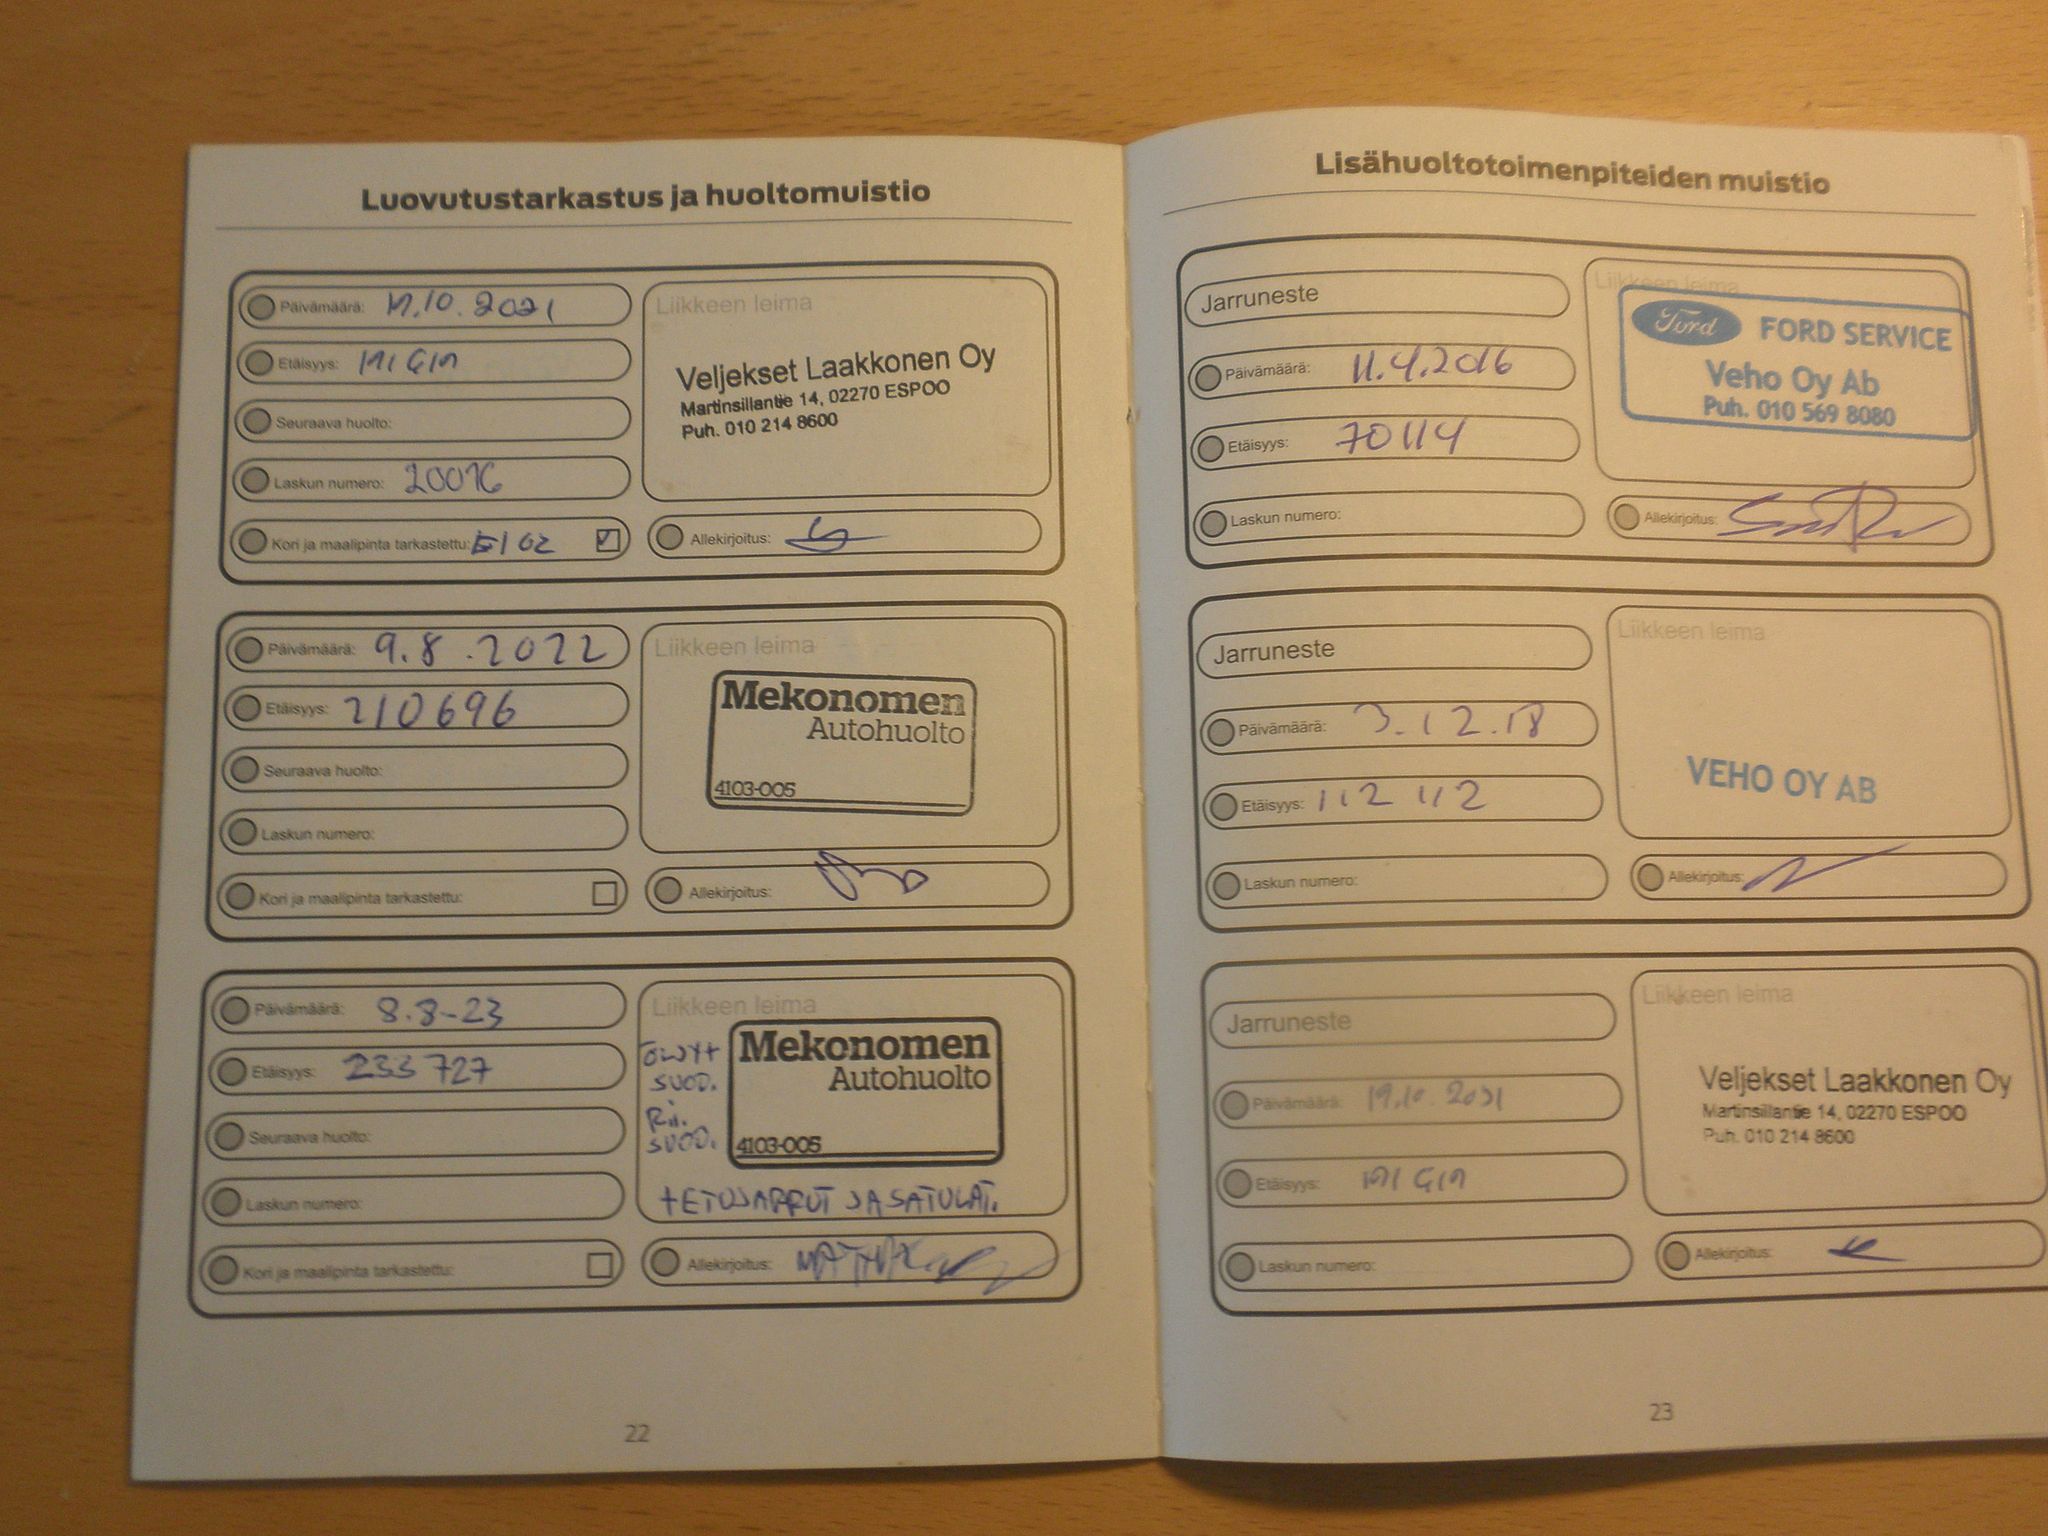 Luovutustarkastus ja huoltomuistio
Päivämäärä: .10.2021
Etäisyys:
Seuraava huolto:
Laskun numero:
Kori ja maalipinta tarkastettu:
Liikkeen leima
Veljekset Laakkonen Oy
Martinsillantie 14, 02270 ESPOO
Puh. 010 214 8600
Allekirjoitus:
Päivämäärä: 9.8.2022
Etäisyys: 210696
Seuraava huolto:
Laskun numero:
Kori ja maalipinta tarkastettu:
Liikkeen leima
Mekonomen
Autohuolto
4103-005
Allekirjoitus:
Päivämäärä: 8.8-23
Etäisyys: 233 727
Seuraava huolto:
Laskun numero:
Kori ja maalipinta tarkastettu:
Liikkeen leima
ÖLJYT+
SUOD.
Rii.
SUOD.
Mekonomen
Autohuolto
4103-005
+ETUJARRUT JA SATULAT.
Allekirjoitus:
22
Lisähuoltotoimenpiteiden muistio
Jarruneste
Päivämäärä: 11.4.2016
Etäisyys: 70114
Laskun numero:
Liikkeen leima
Ford FORD SERVICE
Veho Oy Ab
Puh. 010 569 8080
Allekirjoitus:
Jarruneste
Päivämäärä: 3.12.18
Etäisyys: 112 112
Laskun numero:
Liikkeen leima
VEHO OY AB
Allekirjoitus:
Jarruneste
Päivämäärä: 19.10.2021
Etäisyys:
Laskun numero:
Liikkeen leima
Veljekset Laakkonen Oy
Martinsillantie 14, 02270 ESPOO
Puh. 010 214 8600
Allekirjoitus:
23